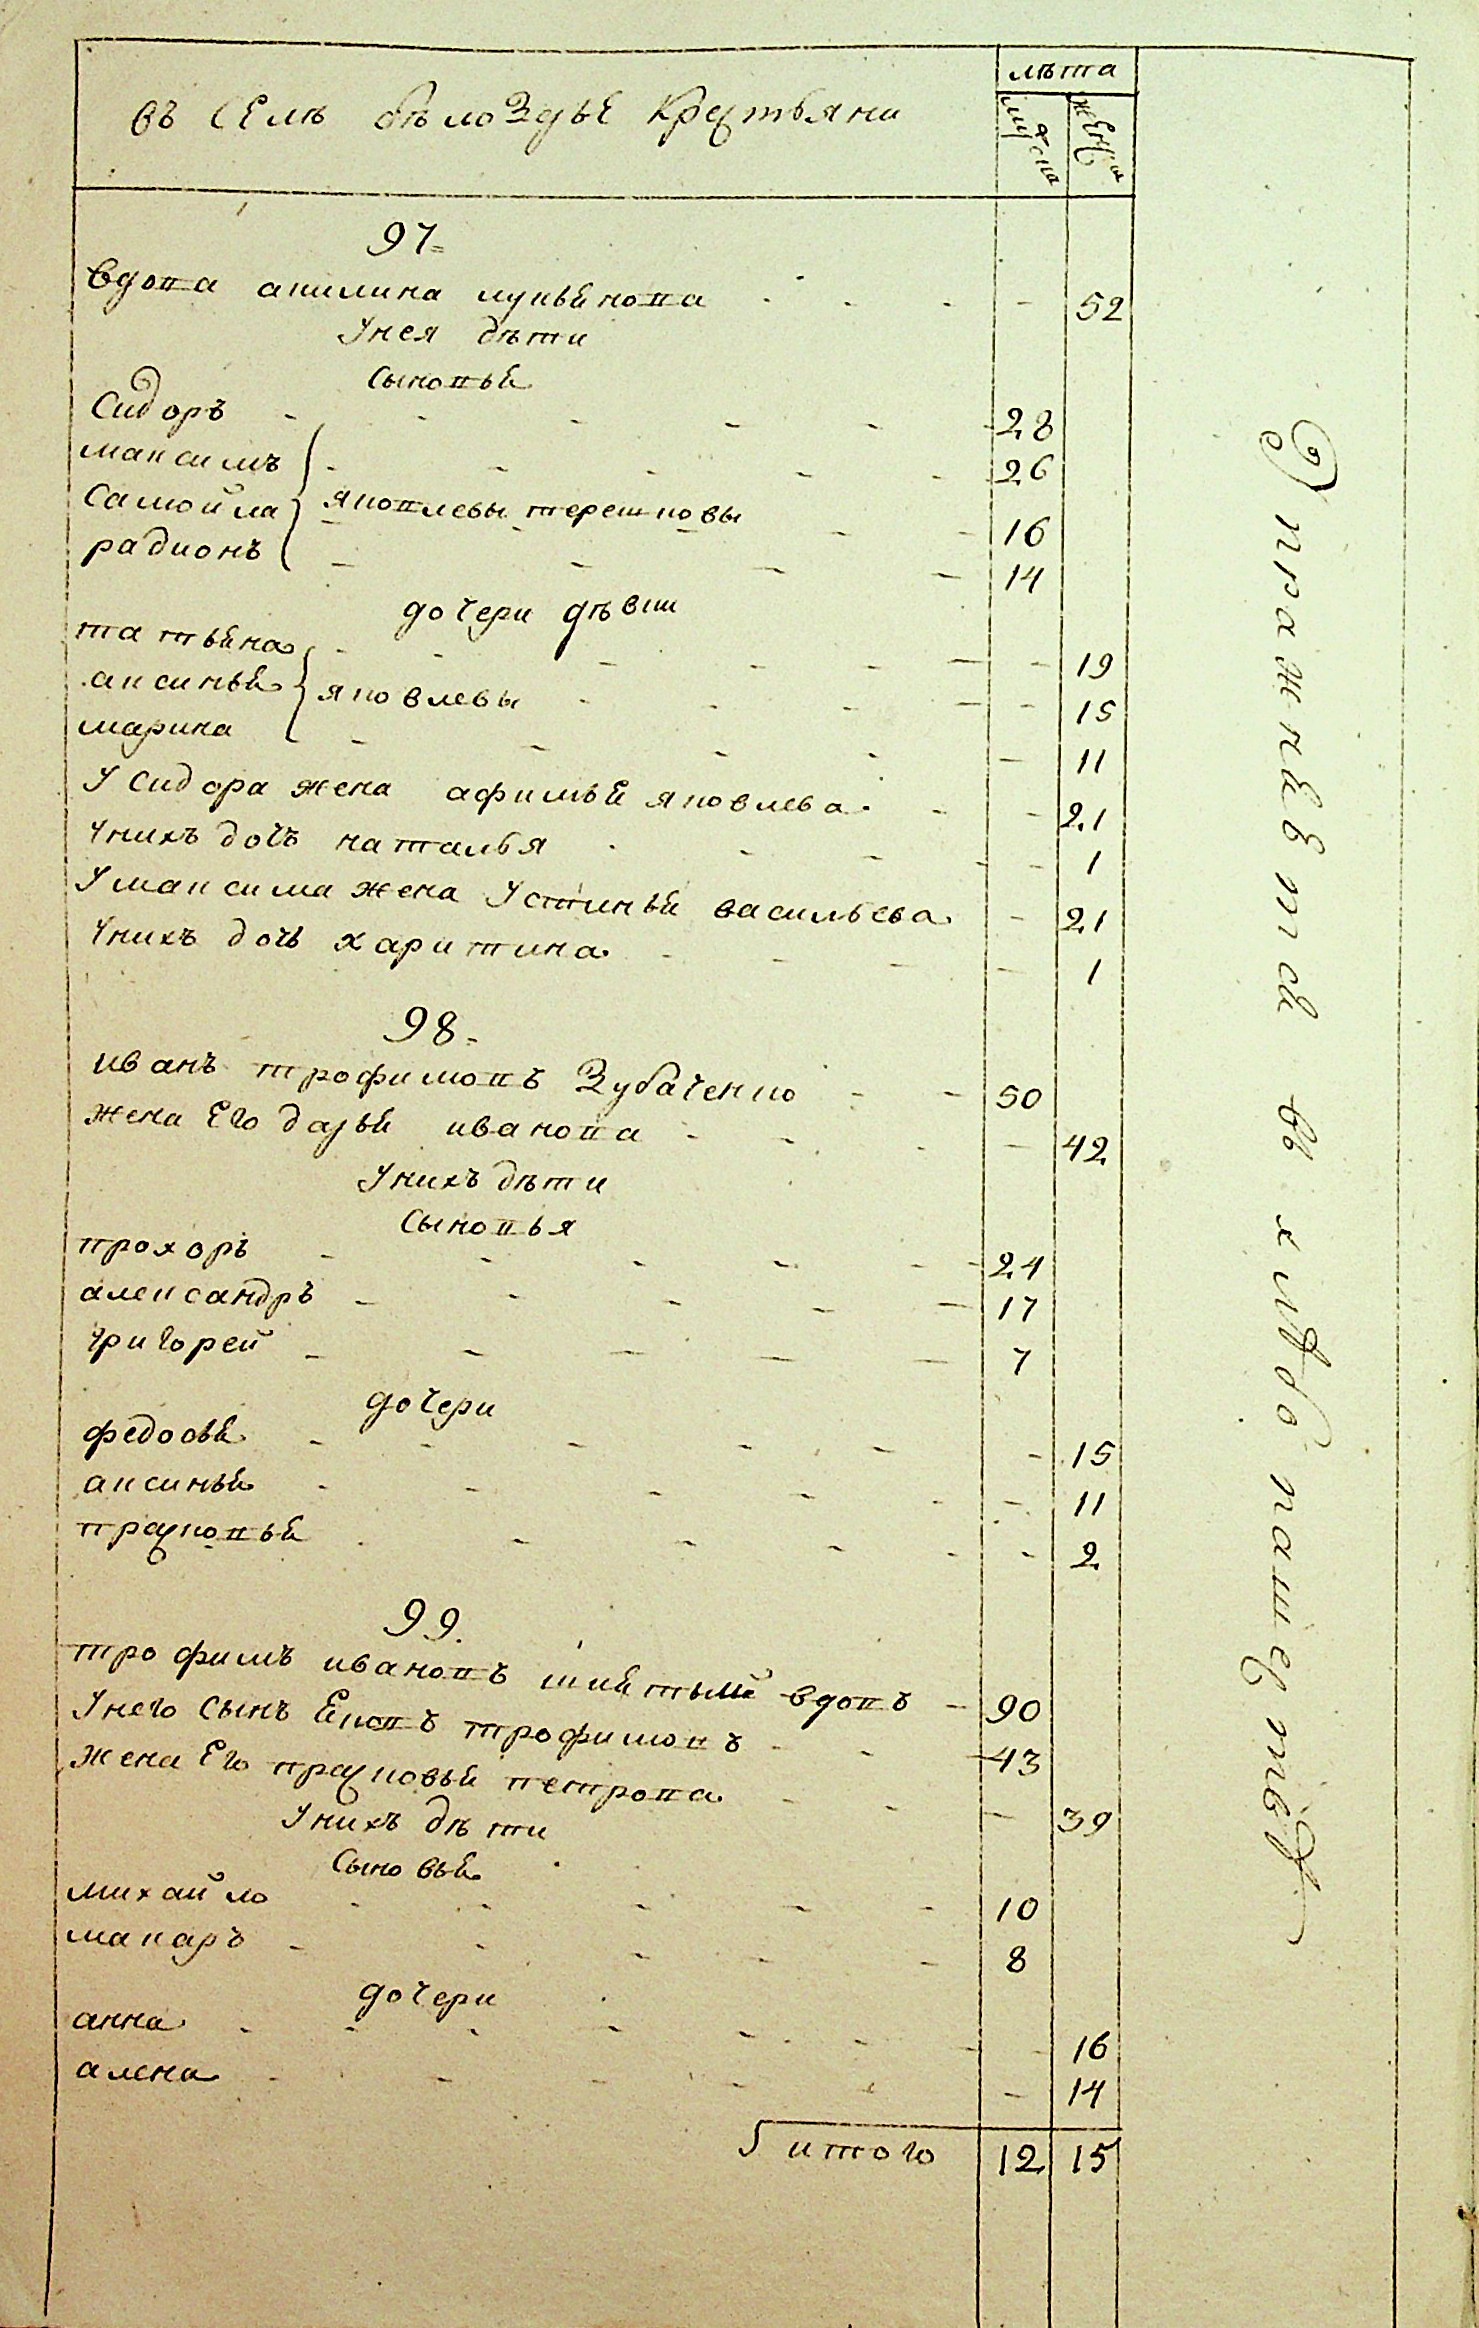 въ селѣ бѣлозерье крестьяни
лѣта
мужеска
женска
97
вдова акилина лукьянова 52
У нея дѣти
сыновья
Сидоръ 28
максимъ 26
Самойла яковлевы терешковы 16
радионъ 14
дочери дѣвки
татьяна 19
аксинья яковлевы 15
марина 11
У Сидора жена афимья яковлева 21
У нихъ дочь наталья 1
У максима жена Устинья васильева 21
У нихъ дочь харитина 1
98
иванъ трофимовъ Зубаченко 50
жена Его дарья иванова 42
У нихъ дѣти
Сыновья
прохоръ 24
александръ 17
григорей 7
дочери
федосья 15
аксинья 11
прасковья 2
99
трофимъ ивановъ вдовъ 90
У него Сынъ трофимовъ 43
жена Его прасковья петрова 39
У нихъ дѣти
Сыновья
михайло 10
макаръ 8
дочери
анна 16
алена 14
итого 12 15